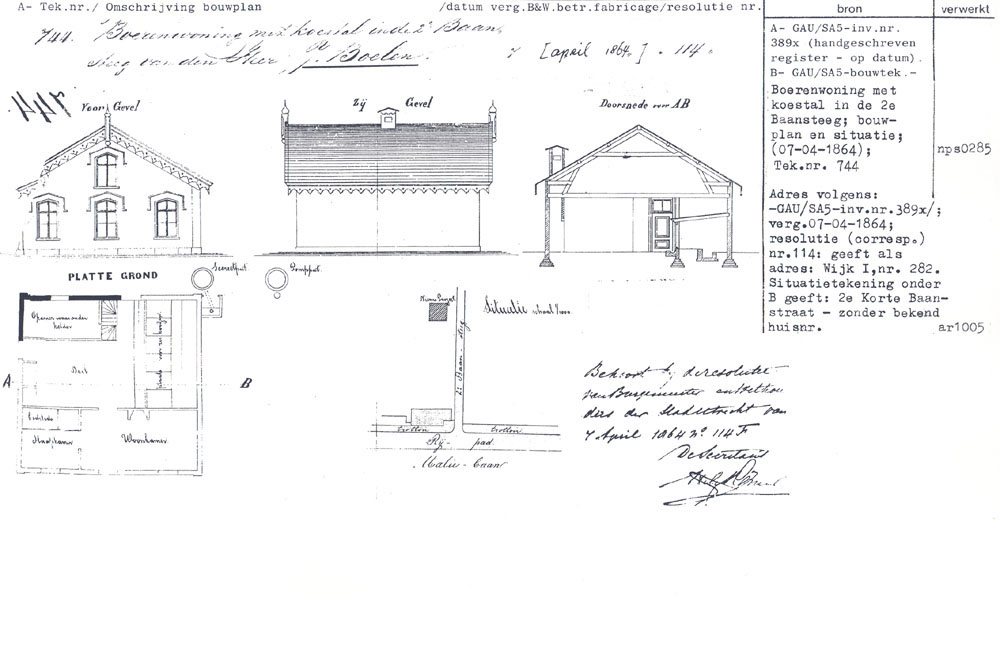 A- Tek.nr./ Omschrijving bouwplan /datum verg.B&W.betr.fabricage/resolutie nr.
744. Boerenwoning met koestal in de 2e Baan,
steeg van den Heer, P. Boelen. 7 [april 1864.] - 114.
744.
Voor Gevel
Zij Gevel
Doorsnede over AB
PLATTE GROND
A
B
Deel
Woonkamer
Nieuw Gevel
Situatie schaal 1/1000
2e Baan-steeg
trottoir
trottoir
Rij-pad.
Malie-Baan
Behoort bij de resolutie
van Burgemeester en Wethou
ders der Stad Utrecht van
7 April 1864 No. 114 F
De Secretaris
bron
verwerkt
A- GAU/SA5-inv.nr.
389x (handgeschreven
register - op datum).
B- GAU/SA5-bouwtek.-
Boerenwoning met
koestal in de 2e
Baansteeg; bouw-
plan en situatie;
(07-04-1864);
Tek.nr. 744
nps0285
Adres volgens:
-GAU/SA5-inv.nr.389x/;
verg.07-04-1864;
resolutie (corresp.)
nr.114: geeft als
adres: Wijk I,nr. 282.
Situatietekening onder
B geeft: 2e Korte Baan-
straat - zonder bekend
huisnr.
ar1005